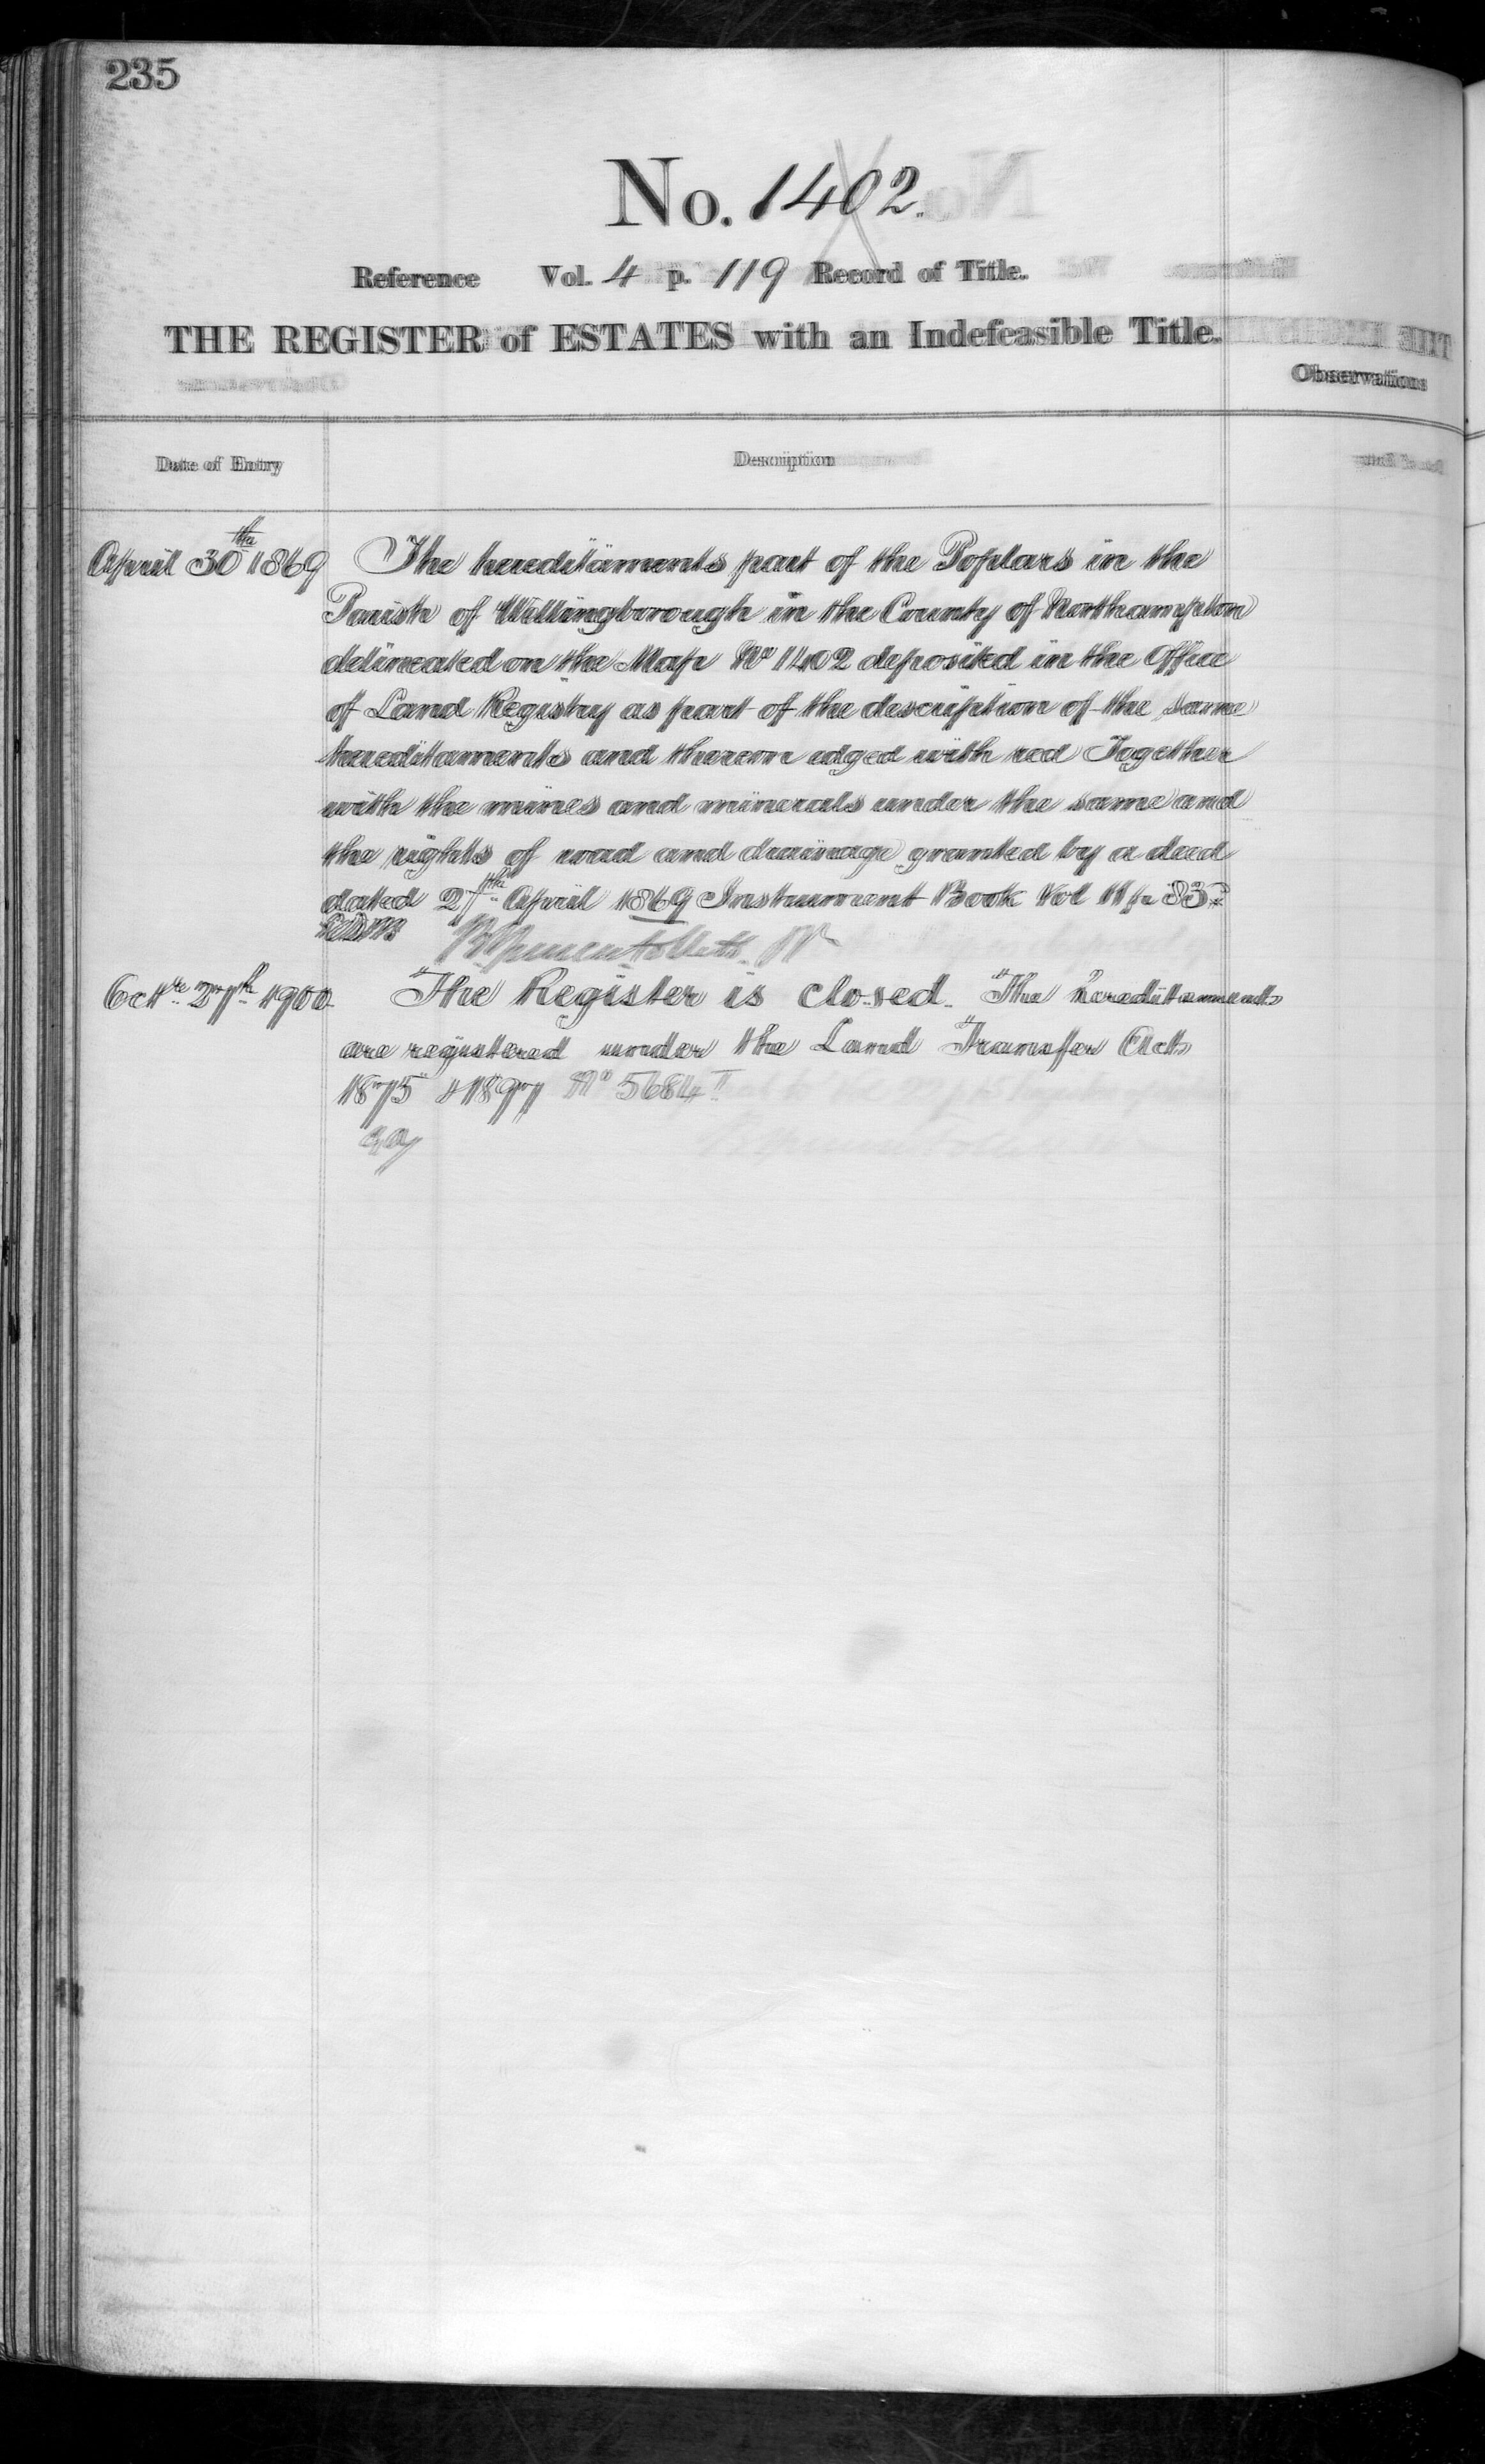 235
No. 1402.
Reference Vol. 4 p. 119 Record of Title.
THE REGISTER of ESTATES with an Indefeasible Title.
Observations
Date of Entry
Description
April 30th 1869 The hereditaments part of the Poplars in the
Parish of Wellingborough in the County of Northampton
delineated on the Map No 1402 deposited in the Office
of Land Registry as part of the description of the same
hereditaments and thereon edged with red Together
with the mines and minerals under the same and
the rights of road and drainage granted by a deed
dated 27th April 1869 Instrument Book Vol 11 p 83
Octre 27th 1900. The Register is closed. The hereditaments
are registered under the Land Transfer Acts
1875 & 1897 No 5684